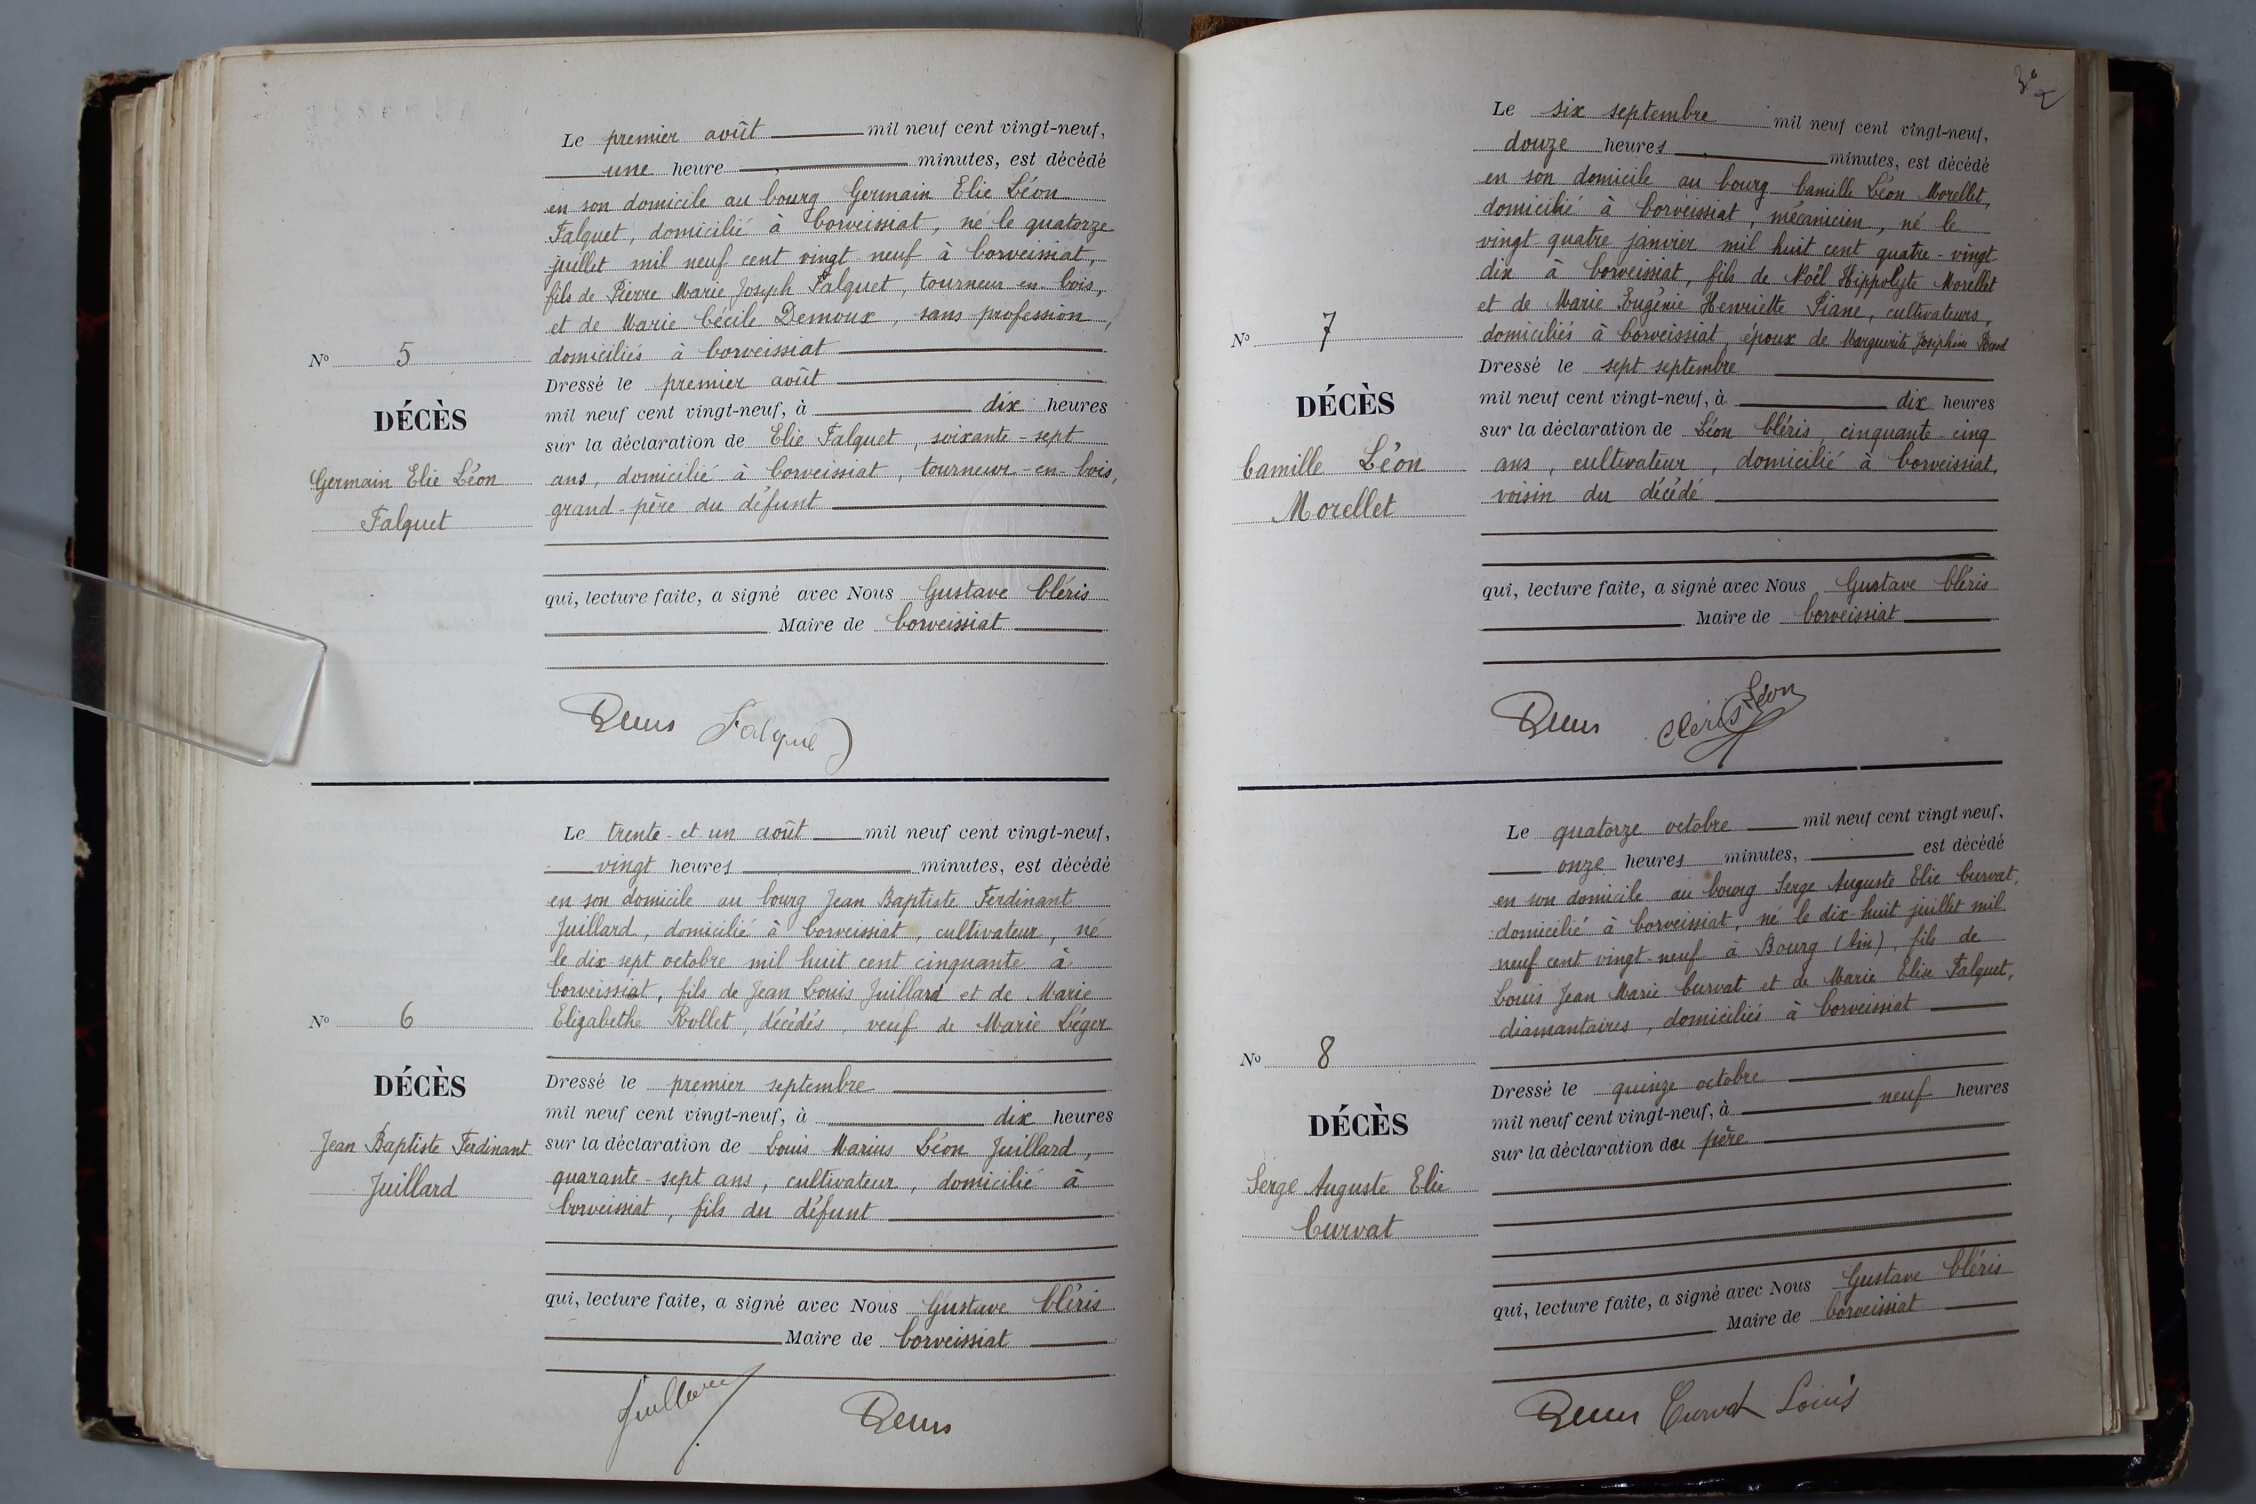 Le premier août mil neuf cent vingt-neuf,
une heure minutes, est décédé
en son domicile au bourg Germain Elie Léon
Falquet, domicilié à Corveissiat, né le quatorze
juillet mil neuf cent vingt neuf à Corveissiat,
fils de Pierre Marie Joseph Falquet, tourneur en bois,
et de Marie Cécile Demoux, sans profession,
domiciliés à Corveissiat
Nº 5
Dressé le premier août
mil neuf cent vingt-neuf, à dix heures
DÉCÈS
sur la déclaration de Elie Falquet, soixante-sept
Germain Elie Léon
ans, domicilié à Corveissiat, tourneur-en-bois,
Falquet
grand-père du défunt
qui, lecture faite, a signé avec Nous Gustave Cléris
Maire de Corveissiat
Falquet
Le trente-et-un août mil neuf cent vingt-neuf,
vingt heures minutes, est décédé
en son domicile au bourg Jean Baptiste Ferdinant
Juillard, domicilié à Corveissiat, cultivateur, né
le dix-sept octobre mil huit cent cinquante à
Corveissiat, fils de Jean Louis Juillard et de Marie
Nº 6
Elizabethe Rollet, décédés, veuf de Marie Léger
DÉCÈS
Dressé le premier septembre
mil neuf cent vingt-neuf, à dix heures
Jean Baptiste Ferdinant
Juillard
sur la déclaration de Louis Marius Léon Juillard,
quarante-sept ans, cultivateur, domicilié à
Corveissiat, fils du défunt
qui, lecture faite, a signé avec Nous Gustave Cléris
Maire de Corveissiat
Juillard
Le six septembre mil neuf cent vingt-neuf,
douze heures minutes, est décédé
en son domicile au bourg Camille Léon Morellet,
domicilié à Corveissiat, mécanicien, né le
vingt-quatre janvier mil huit cent quatre-vingt
dix à Corveissiat, fils de Noël Hippolyte Morellet
et de Marie Eugénie Henriette Piane, cultivateurs,
Nº 7
domiciliés à Corveissiat, époux de Marguerite Joséphine
Dressé le sept septembre
DÉCÈS
mil neuf cent vingt-neuf, à dix heures
sur la déclaration de Léon Cléris, cinquante-cinq
Camille Léon
Morellet
ans, cultivateur, domicilié à Corveissiat,
voisin du décédé
qui, lecture faite, a signé avec Nous Gustave Cléris
Maire de Corveissiat
Cléris Léon
Le quatorze octobre mil neuf cent vingt neuf,
onze heures minutes, est décédé
en son domicile au bourg Serge Auguste Elie Curvat,
domicilié à Corveissiat, né le dix-huit juillet mil
neuf cent vingt-neuf à Bourg (Ain), fils de
Louis Jean Marie Curvat et de Marie Elise Falquet,
diamantaires, domiciliés à Corveissiat
Nº 8
Dressé le quinze octobre
mil neuf cent vingt-neuf, à neuf heures
DÉCÈS
sur la déclaration du père
Serge Auguste Elie
Curvat
qui, lecture faite, a signé avec Nous Gustave Cléris
Maire de Corveissiat
Curvat Louis